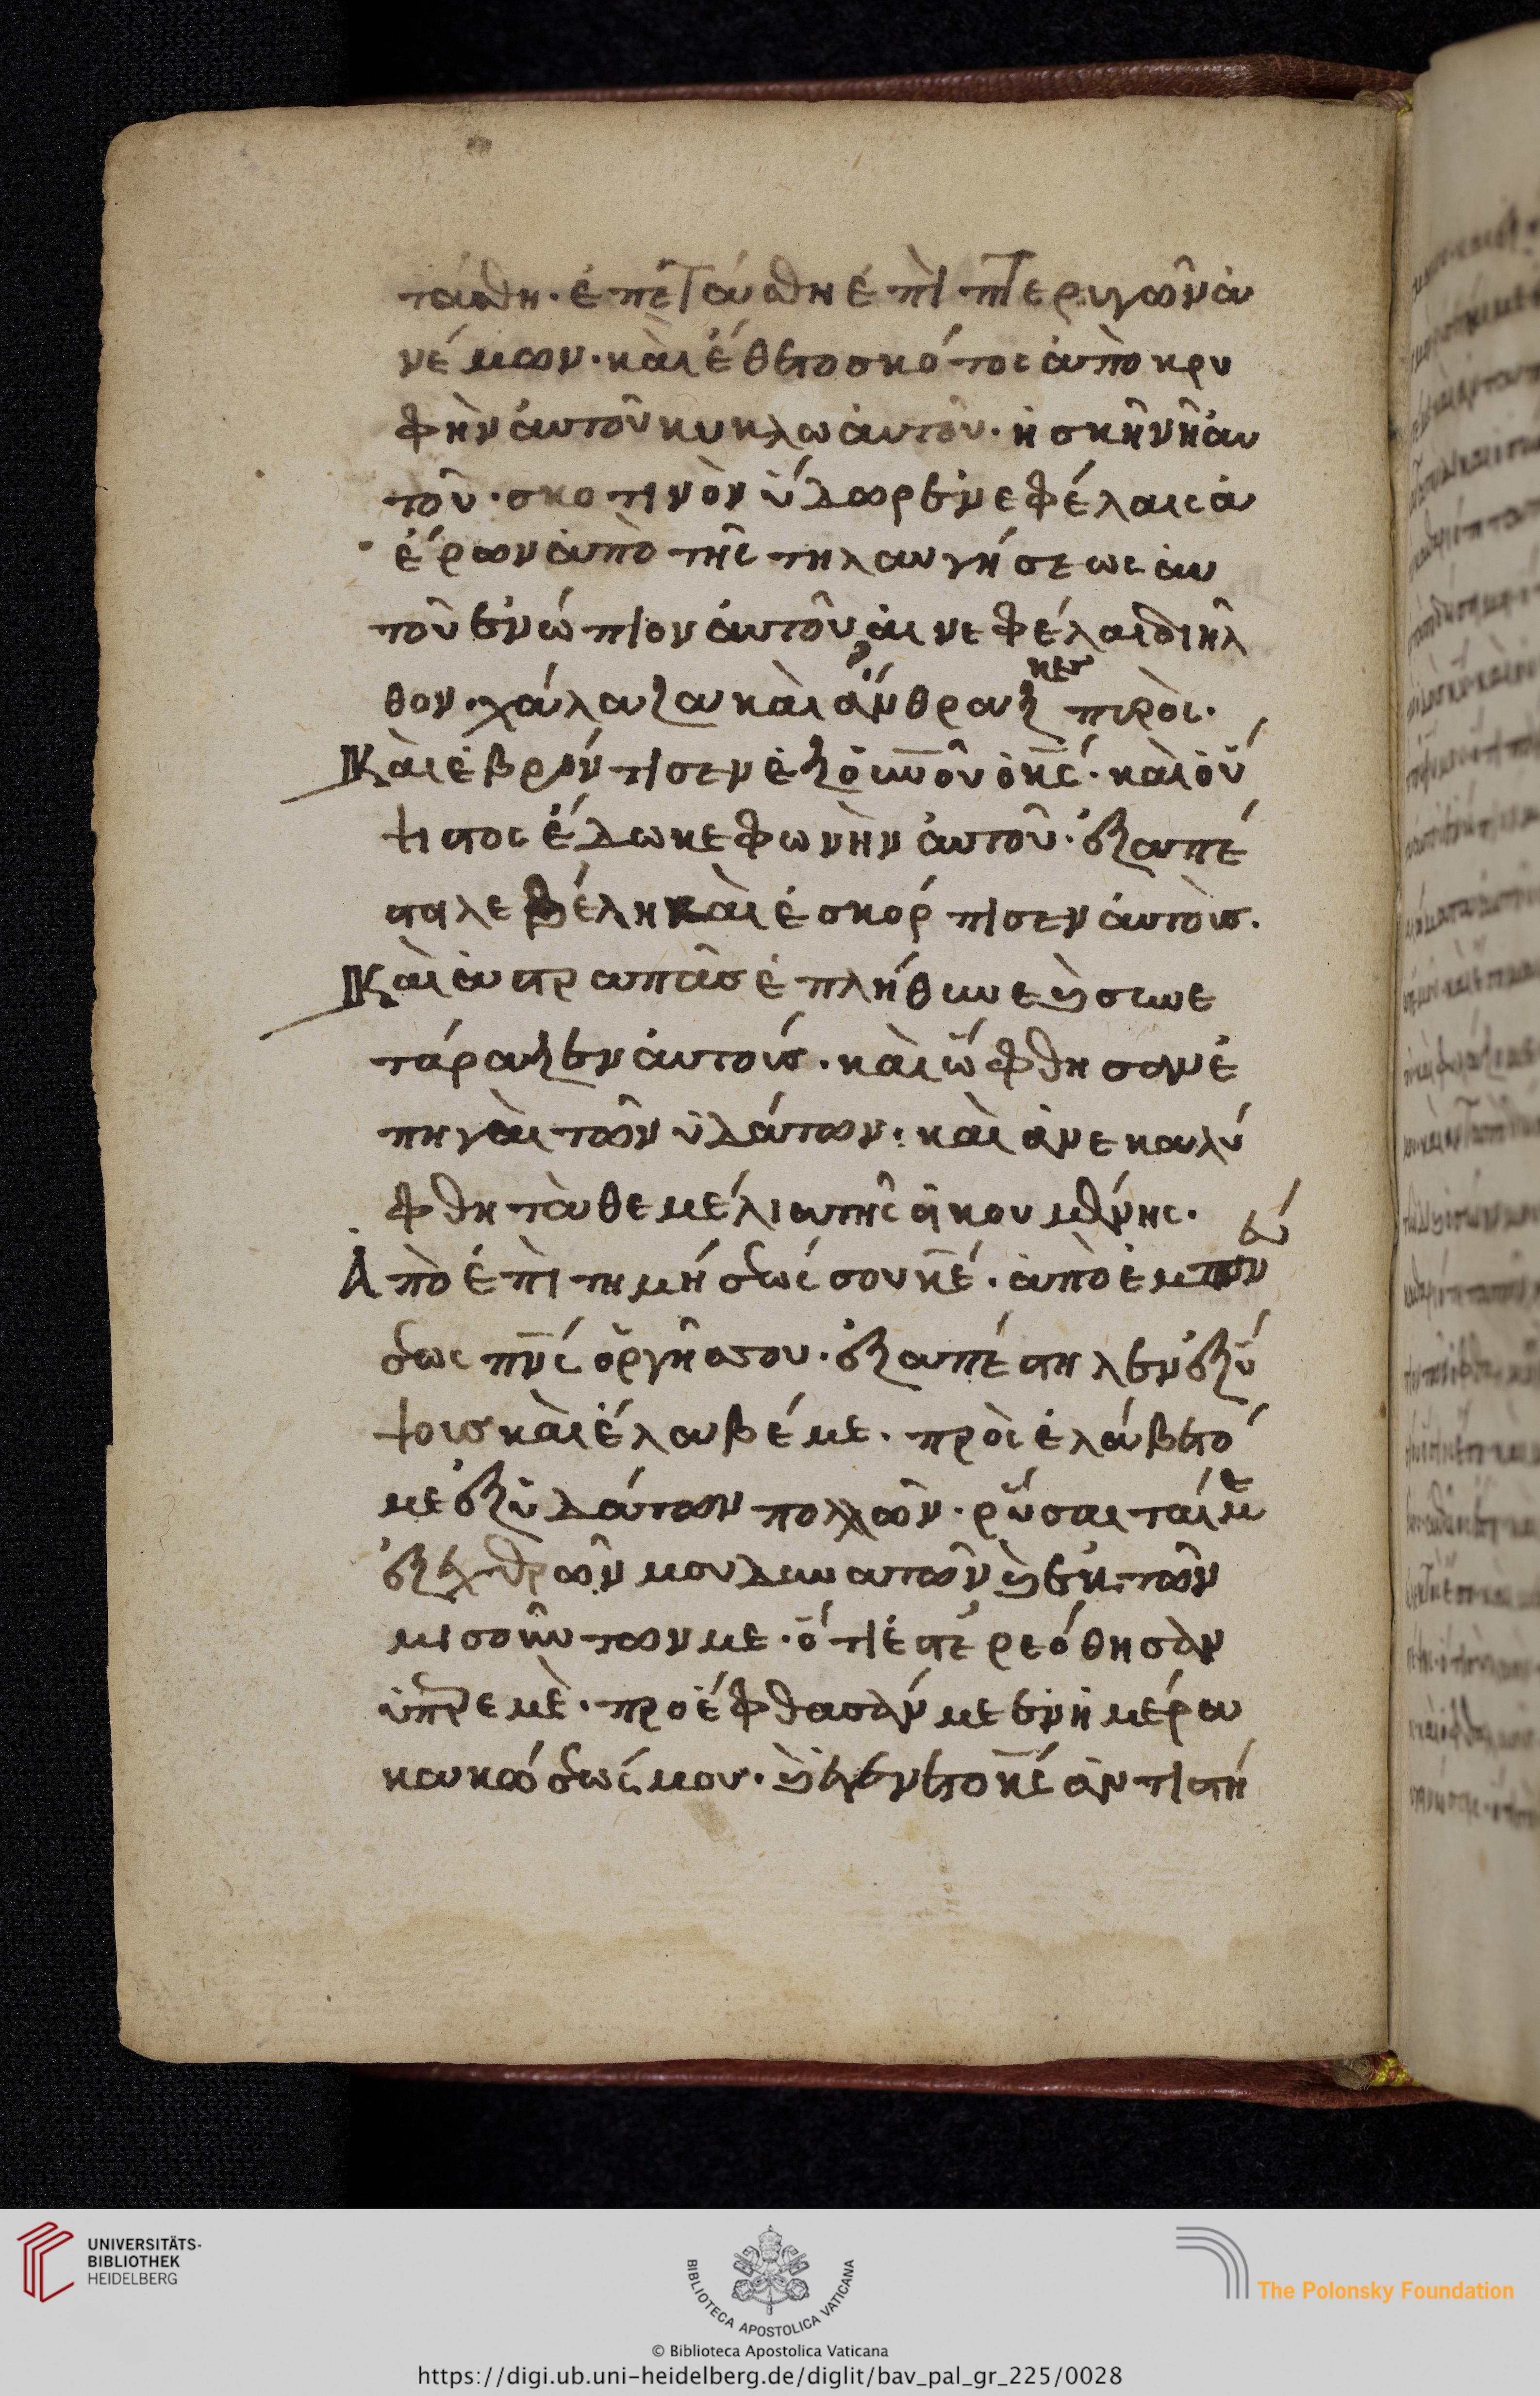 τάσθη· ἐπετάσθη ἐπὶ πτερυγῶν ἀ
νέμων· καὶ ἔθετο σκότος ἀπὸκρυ
φὴν ἀυτοῦ κυκλω ἀυτοῦ· ἡ σκῆνῆ ἀυ
τοῦ· σκοτινὸν ὕδωρ ἐν νεφέλαις ἀ
έρων ἀπὸ τῆς τηλαυγήσεως ἀυ
τοῦ ἐνώπιον ἀυτοῦ ἁι νεφέλαι διῆλ
θον· χάλαζα καὶ ἄνθρακες πυρὸς·
Καὶ ἐβρόντισεν ἐξ ὀυνοῦ ὁ κς· καὶ ὁ ὕ
ψιστος ἔδωκε φωνὴν ἀυτοῦ· ἐξαπέ
στιλε βέλη καὶ ἐσκόρπισεν ἀυτοὺς·
Καὶ ἀστραπὰς ἐπλήθυνε καὶ συνε
τάραξεν ἀυτούς· καὶ ὤφθησαν ἑ
πηγὰι τῶν ὑδάτων· καὶ ἀνεκαλύ
φθη τὰ θεμέλια τῆς οἰκουμένης·
Ἀπὸ ἐπιτιμήσεώς σου κε· ἀπὸ ἐμπν
εύ
σεως πνς ὀργῆς σου· ἐξαπέστηλεν ἐξ ὕ
ψους καὶ ἔλαβέ με· προσελάβετό
με ἐξ ὑδάτων πολλῶν· ῥύσεταί με
ἐξ ἐχθρῶν μου δυνατῶν καὶ ἐκ τῶν
μισούντων με· ὅτι ἐστερεόθησαν
ὑπὲρ ἐμὲ· προέφθασάν με ἐν ἡμέρα
κακώσεώς μου· καὶ ἐγένετο κς ἀντιστή
UNIVERSITÄTS-
BIBLIOTHEK
HEIDELBERG
BIBLIOTECA APOSTOLICA VATICANA
The Polonsky Foundation
© Biblioteca Apostolica Vaticana
https://digi.ub.uni-heidelberg.de/diglit/bav_pal_gr_225/0028